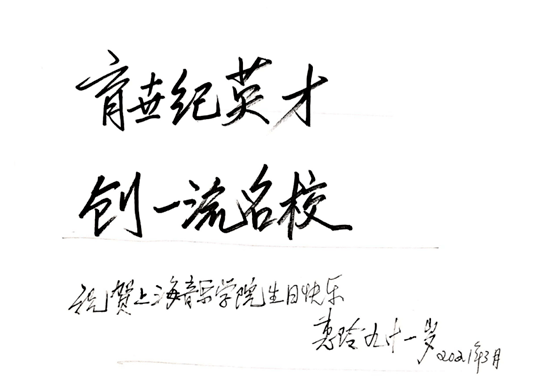 育世纪英才
创一流名校
祝贺上海音乐学院生日快乐
惠玲九十一岁
2021年3月